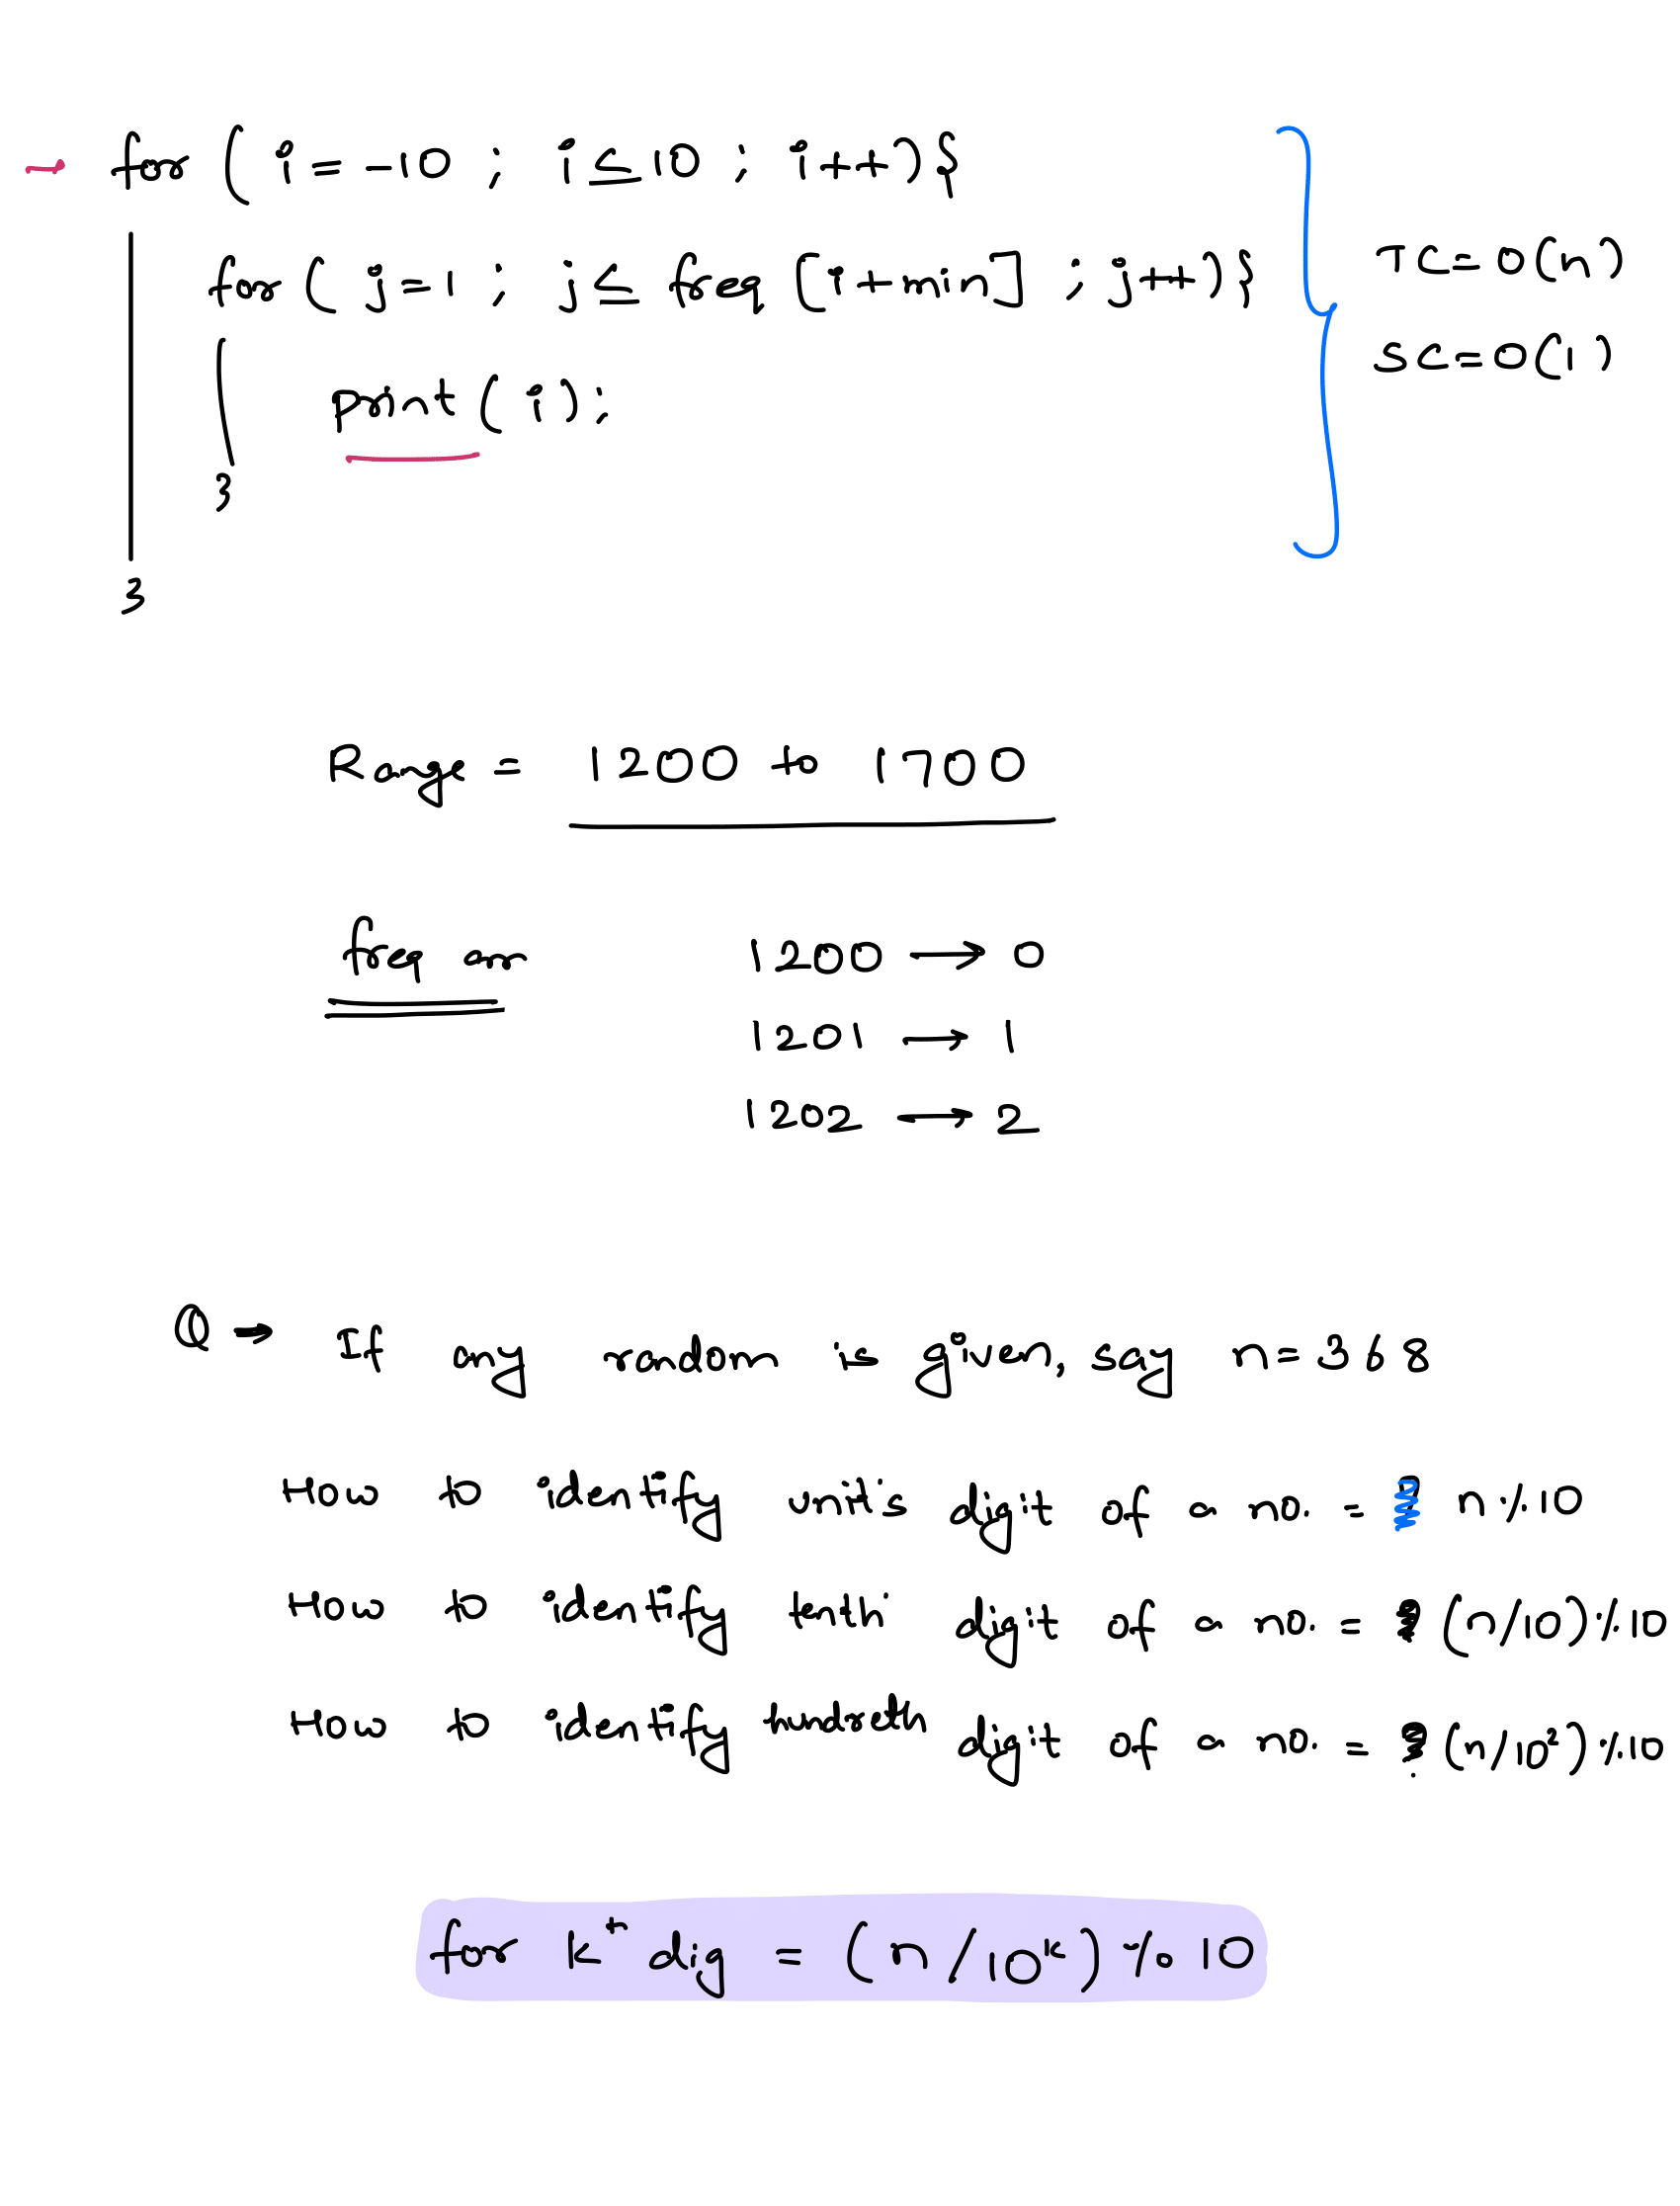 for ( i = -10 ; i ≤ 10 ; i++){
for ( j = 1 ; j ≤ freq [i+min] ; j++){
TC = O(n)
print ( i );
SC = O(1)
}
}
Range = 1200 to 1700
freq arr 1200 → 0
1201 → 1
1202 → 2
Q → If any random is given, say n = 368
How to identify unit's digit of a no. = n % 10
How to identify tenth digit of a no. = (n/10) % 10
How to identify hundreth digit of a no. = (n/10²) % 10
for k dig = (n/10ᵏ) % 10